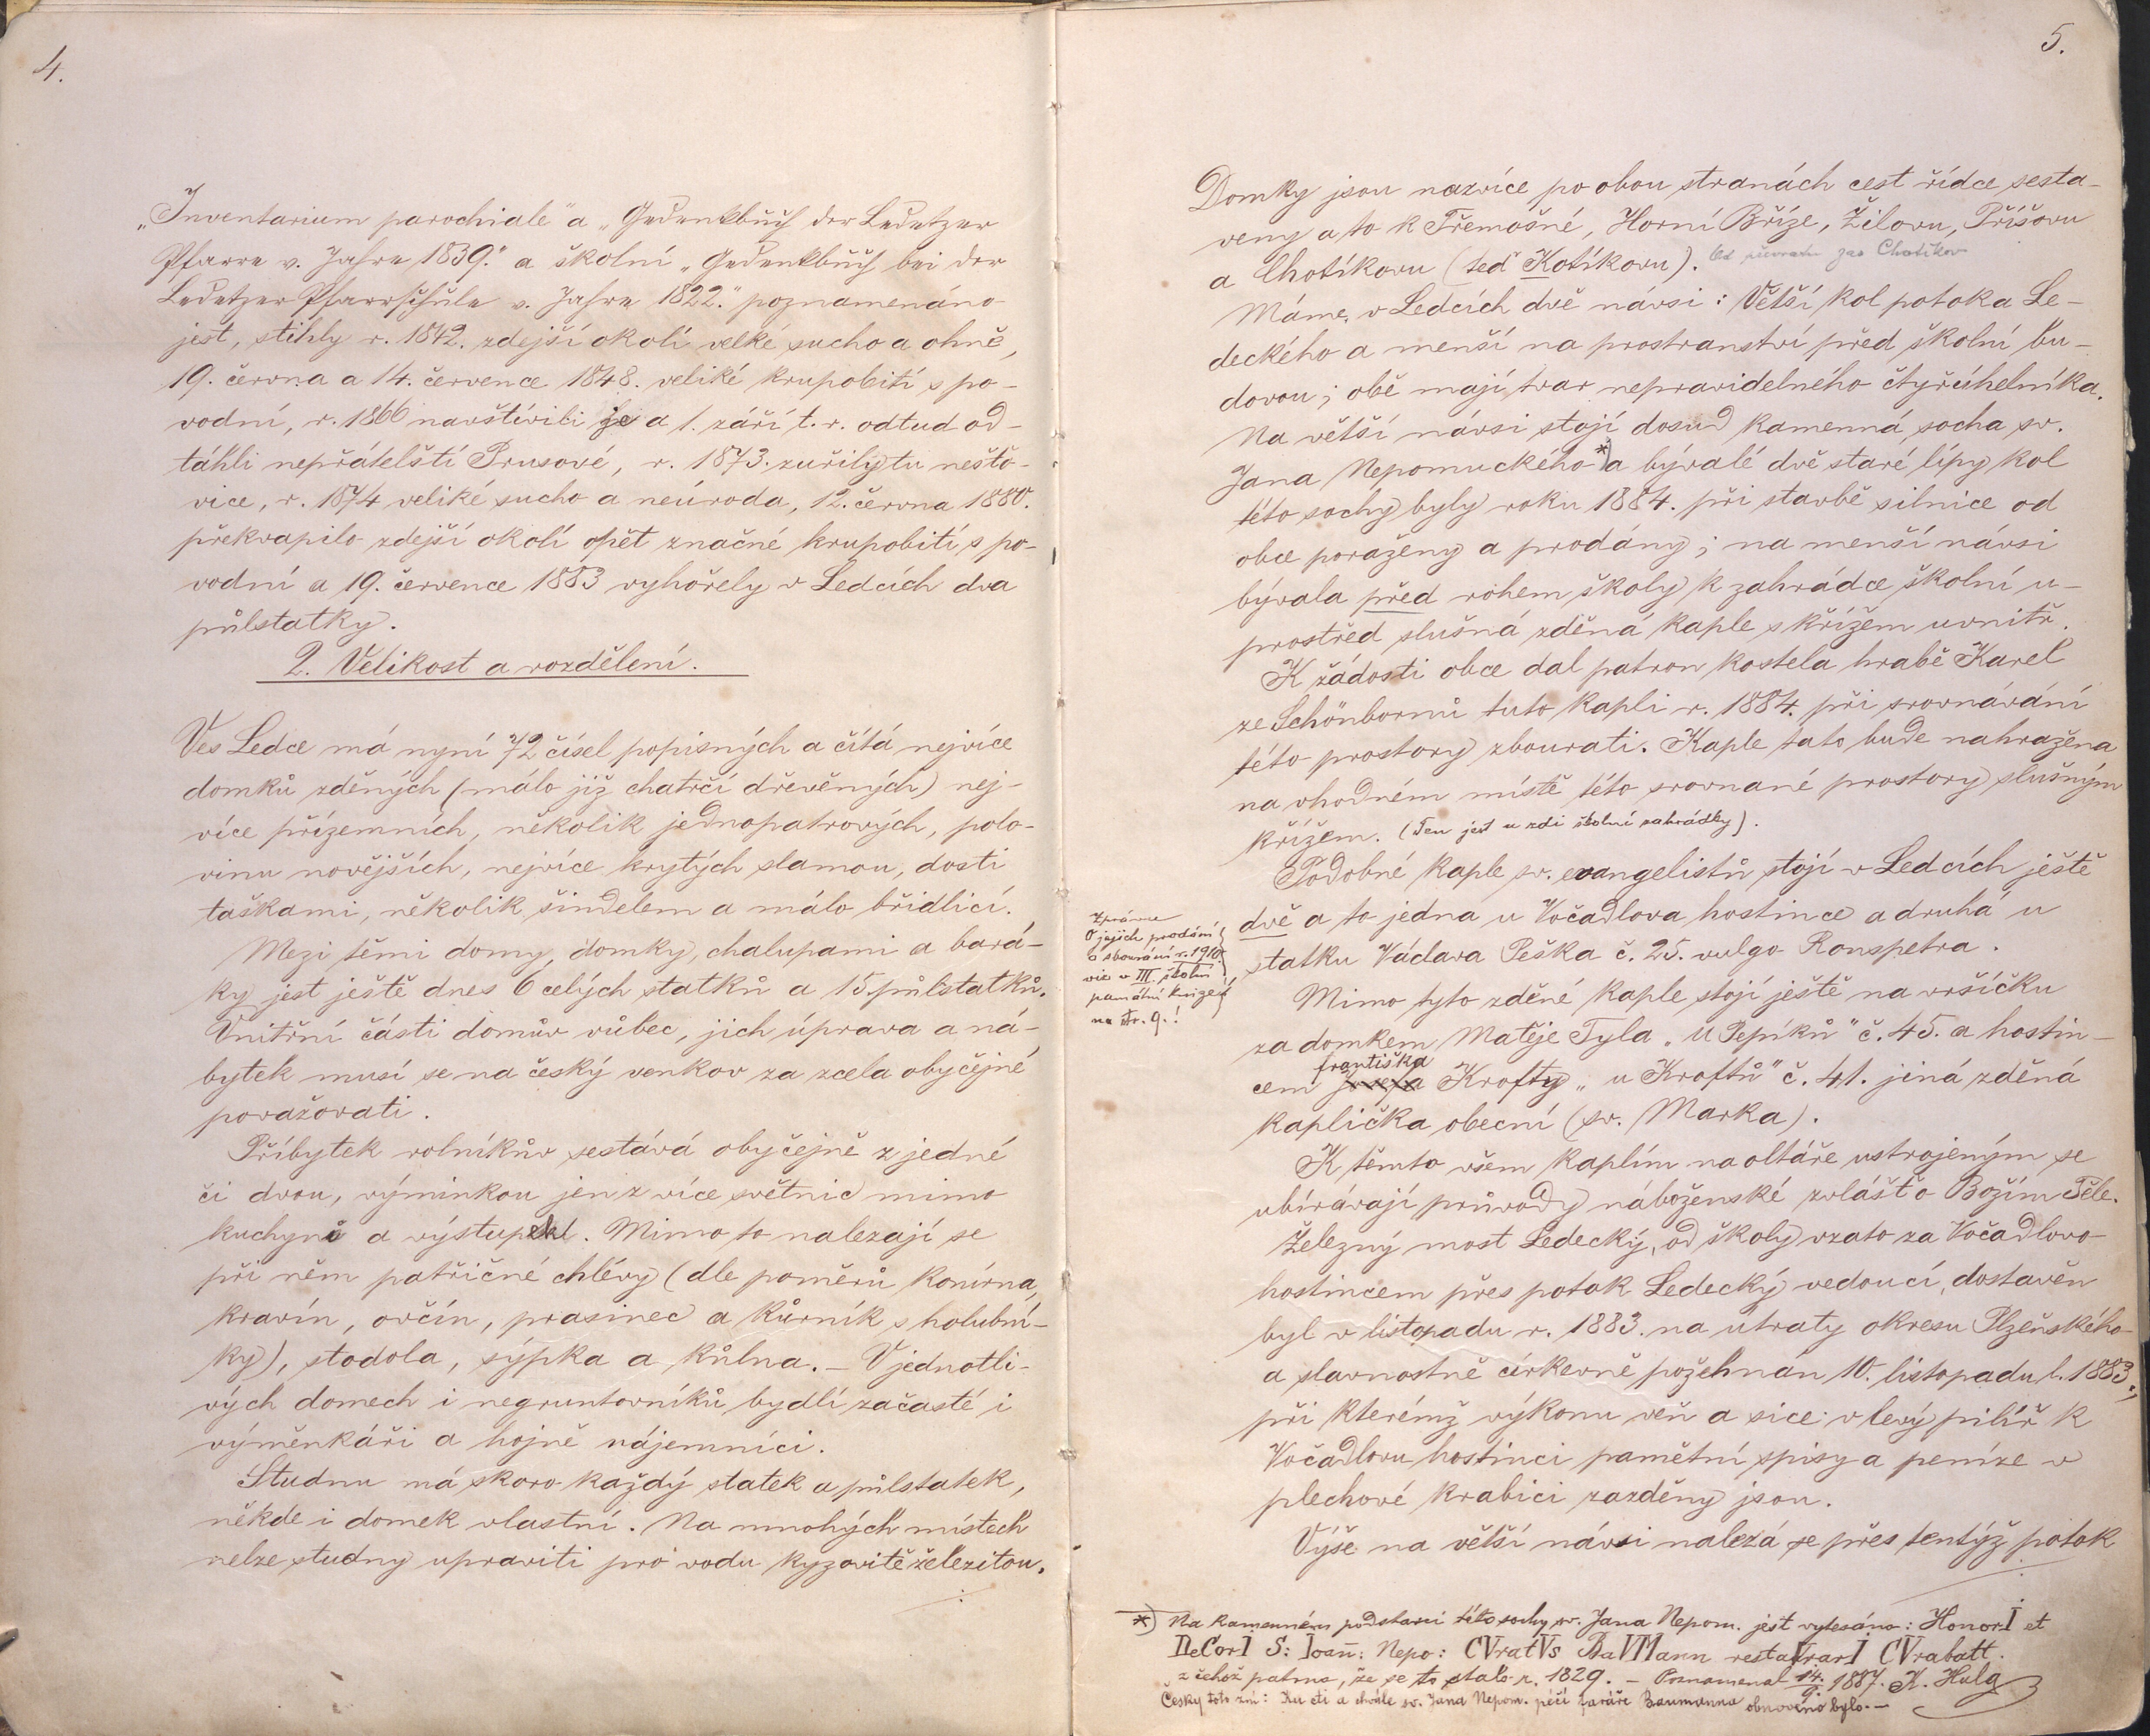 4.
„Inventarium parochiale" a „Gedenkbuch der Ledetzer
Pfarre v. Jahre 1839." a školní „Gedenkbuch bei der
Ledetzer Pfarrschule v. Jahre 1822." poznamenáno
jest, stihly r. 1842. zdejší okolí velké sucho a ohně,
19. června a 14. července 1848. veliké krupobití s po-
vodní, r. 1866 navštívili je a 1. září t. r. odtud od-
táhli nepřátelští Prusové, r. 1873. zuřily tu nešto-
vice, r. 1874 veliké sucho a neúroda, 12. června 1880.
překvapilo zdejší okolí opět značné krupobití s po-
vodní a 19. července 1883 vyhořely v Ledcích dva
půlstatky.
2. Velikost a rozdělení.
Ves Ledce má nyní 72 čísel popisných a čítá nejvíce
domků zděných (málo již chatrčí dřevěných) nej-
více přízemních, několik jednopatrových, polo-
vinu novějších, nejvíce krytých slamou, dosti
taškami, několik šindelem a málo břidlicí.
Mezi těmi domy, domky, chalupami a bará-
ky jest ještě dnes 6 celých statků a 15. půlstatků.
Vnitřní části domův vůbec, jich úprava a ná-
bytek musí se na český venkov za zcela obyčejné
považovati.
Příbytek rolníkův sestává obyčejně z jedné
či dvou, výminkou jen z více světnic mimo
kuchyně a výstupek. Mimo to nalezají se
při něm patřičné chlévy (dle poměrů konírna,
kravín, ovčín, prasinec a kůrník s holubní-
ky), stodola, sýpka a kůlna. – V jednotli-
vých domech i negruntovníků bydlí začasté i
výměnkáři a hojně nájemníci.
Studnu má skoro každý statek a půlstatek,
někde i domek vlastní. Na mnohých místech
nelze studny upraviti pro vodu kyzovitě železitou.
5.
Domky jsou nazvíce po obou stranách cest řídce sesta-
veny a to k Třemošné, Horní Bříze, Žilovu, Příšovu
a Chotíkovu (teď Kotíkovu). Od převratu zas Chotíkov
Máme v Ledcích dvě návsi: Větší kol potoka Le-
deckého a menší na prostranství před školní bu-
dovou; obě mají tvar nepravidelného čtyřúhelníka.
Na větší návsi stojí dosud kamenná socha sv.
Jana Nepomuckého *) a bývalé dvě staré lípy kol
této sochy byly roku 1884. při stavbě silnice od
obce poraženy a prodány; na menší návsi
bývala před rohem školy k zahrádce školní u-
prostřed slušná zděná kaple s křížem uvnitř.
K žádosti obce dal patron kostela hrabě Karel
ze Schönbornů tuto kapli r. 1884. při srovnávání
této prostory zbourati. Kaple tato bude nahražena
na vhodném místě této srovnané prostory slušným
křížem. (Ten jest u zdi školní zahrádky).
Podobné kaple sv. evangelistů stojí v Ledcích ještě
dvě a to jedna u Vočadlova hostince a druhá u
statku Václava Peška č. 25. vulgo Ronspetra.
Zpráva
O jejich prodání
a sbourání r. 1910.
viz v III. školní
pamětní knize
na str. 9.!
Mimo tyto zděné kaple stojí ještě na vršíčku
za domkem Matěje Tyla „U Pepíků" č. 45. a hostin-
Františka
cem Josefa Krofty „u Kroftů" č. 41. jiná zděná
kaplička obecní (sv. Marka).
K těmto všem kaplím na oltáře ustrojeným se
ubírávají průvody náboženské zvlášť o Božím Těle.
Železný most Ledecký, od školy vzato za Vočadlovo
hostincem přes potok Ledecký vedoucí, dostavěn
byl v listopadu r. 1883. na útraty okresu Plzeňského
a slavnostně církevně požehnán 10. listopadu l. 1883.,
při kterémž výkonu veň a sice v levý pilíř k
Vočadlovu hostinci pamětní spisy a peníze v
plechové krabici zazděny jsou.
Výše na větší návsi nalezá se přes tentýž potok
*) Na kamenném podstavci této sochy sv. Jana Nepom. jest vytesáno: HonorI et
DeCorI S: Ioan̄: Nepo: CVratVs BaVMann restaVrarI CVrabatt.
z čehož patrno, že se to stalo r. 1829. – Poznamenal 14./9. 1887. K. Hulg
Česky toto zní: Ku cti a chvále sv. Jana Nepom. péčí faráře Baumanna obnoveno bylo. –